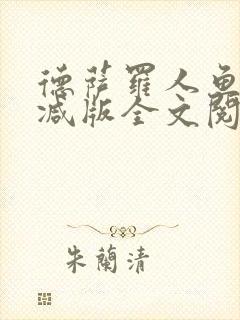 德薩羅人魚
減版全文閱
朱蘭清